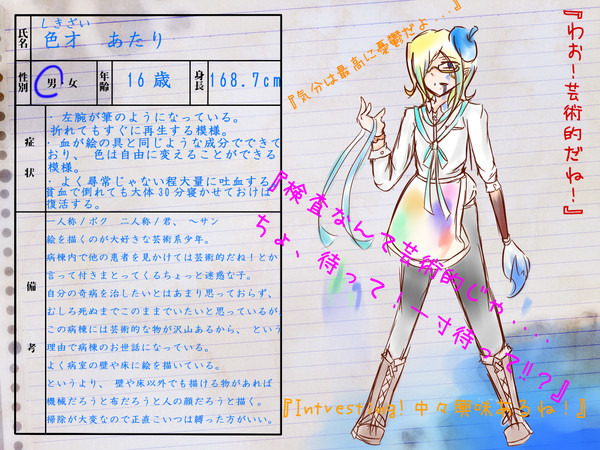 氏名
しきざい
色才 あたり
性別
男・女
年齢
16歳
身長
168.7cm
症状
・左腕が筆のようになっている。
折れてもすぐに再生する模様。
・血が絵の具と同じような成分でできて
おり、色は自由に変えることができる
模様。
・よく尋常じゃない程大量に吐血する
貧血で倒れても大体30分寝かせておけば
復活する。
備考
一人称/ボク 二人称/君、~サン
絵を描くのが大好きな芸術系少年。
病棟内で他の患者を見かけては芸術的だね!とか
言って付きまとってくるちょっと迷惑な子。
自分の奇病を治したいとはあまり思っておらず、
むしろ死ぬまでこのままでいたいと思っているが、
この病棟には芸術的な物が沢山あるから、という
理由で病棟のお世話になっている。
よく病室の壁や床に絵を描いている。
というより、壁や床以外でも描ける物があれば
機械だろうと布だろうと人の顔だろうと描く。
掃除が大変なので正直こいつは縛った方がいい。
『気分は最高に憂鬱だよ...』
『わおー芸術的だね!』
『検査なんて芸術的じゃ....
ちょ、待って!一寸待って!!?』
『Intvesting!中々興味あるね!』